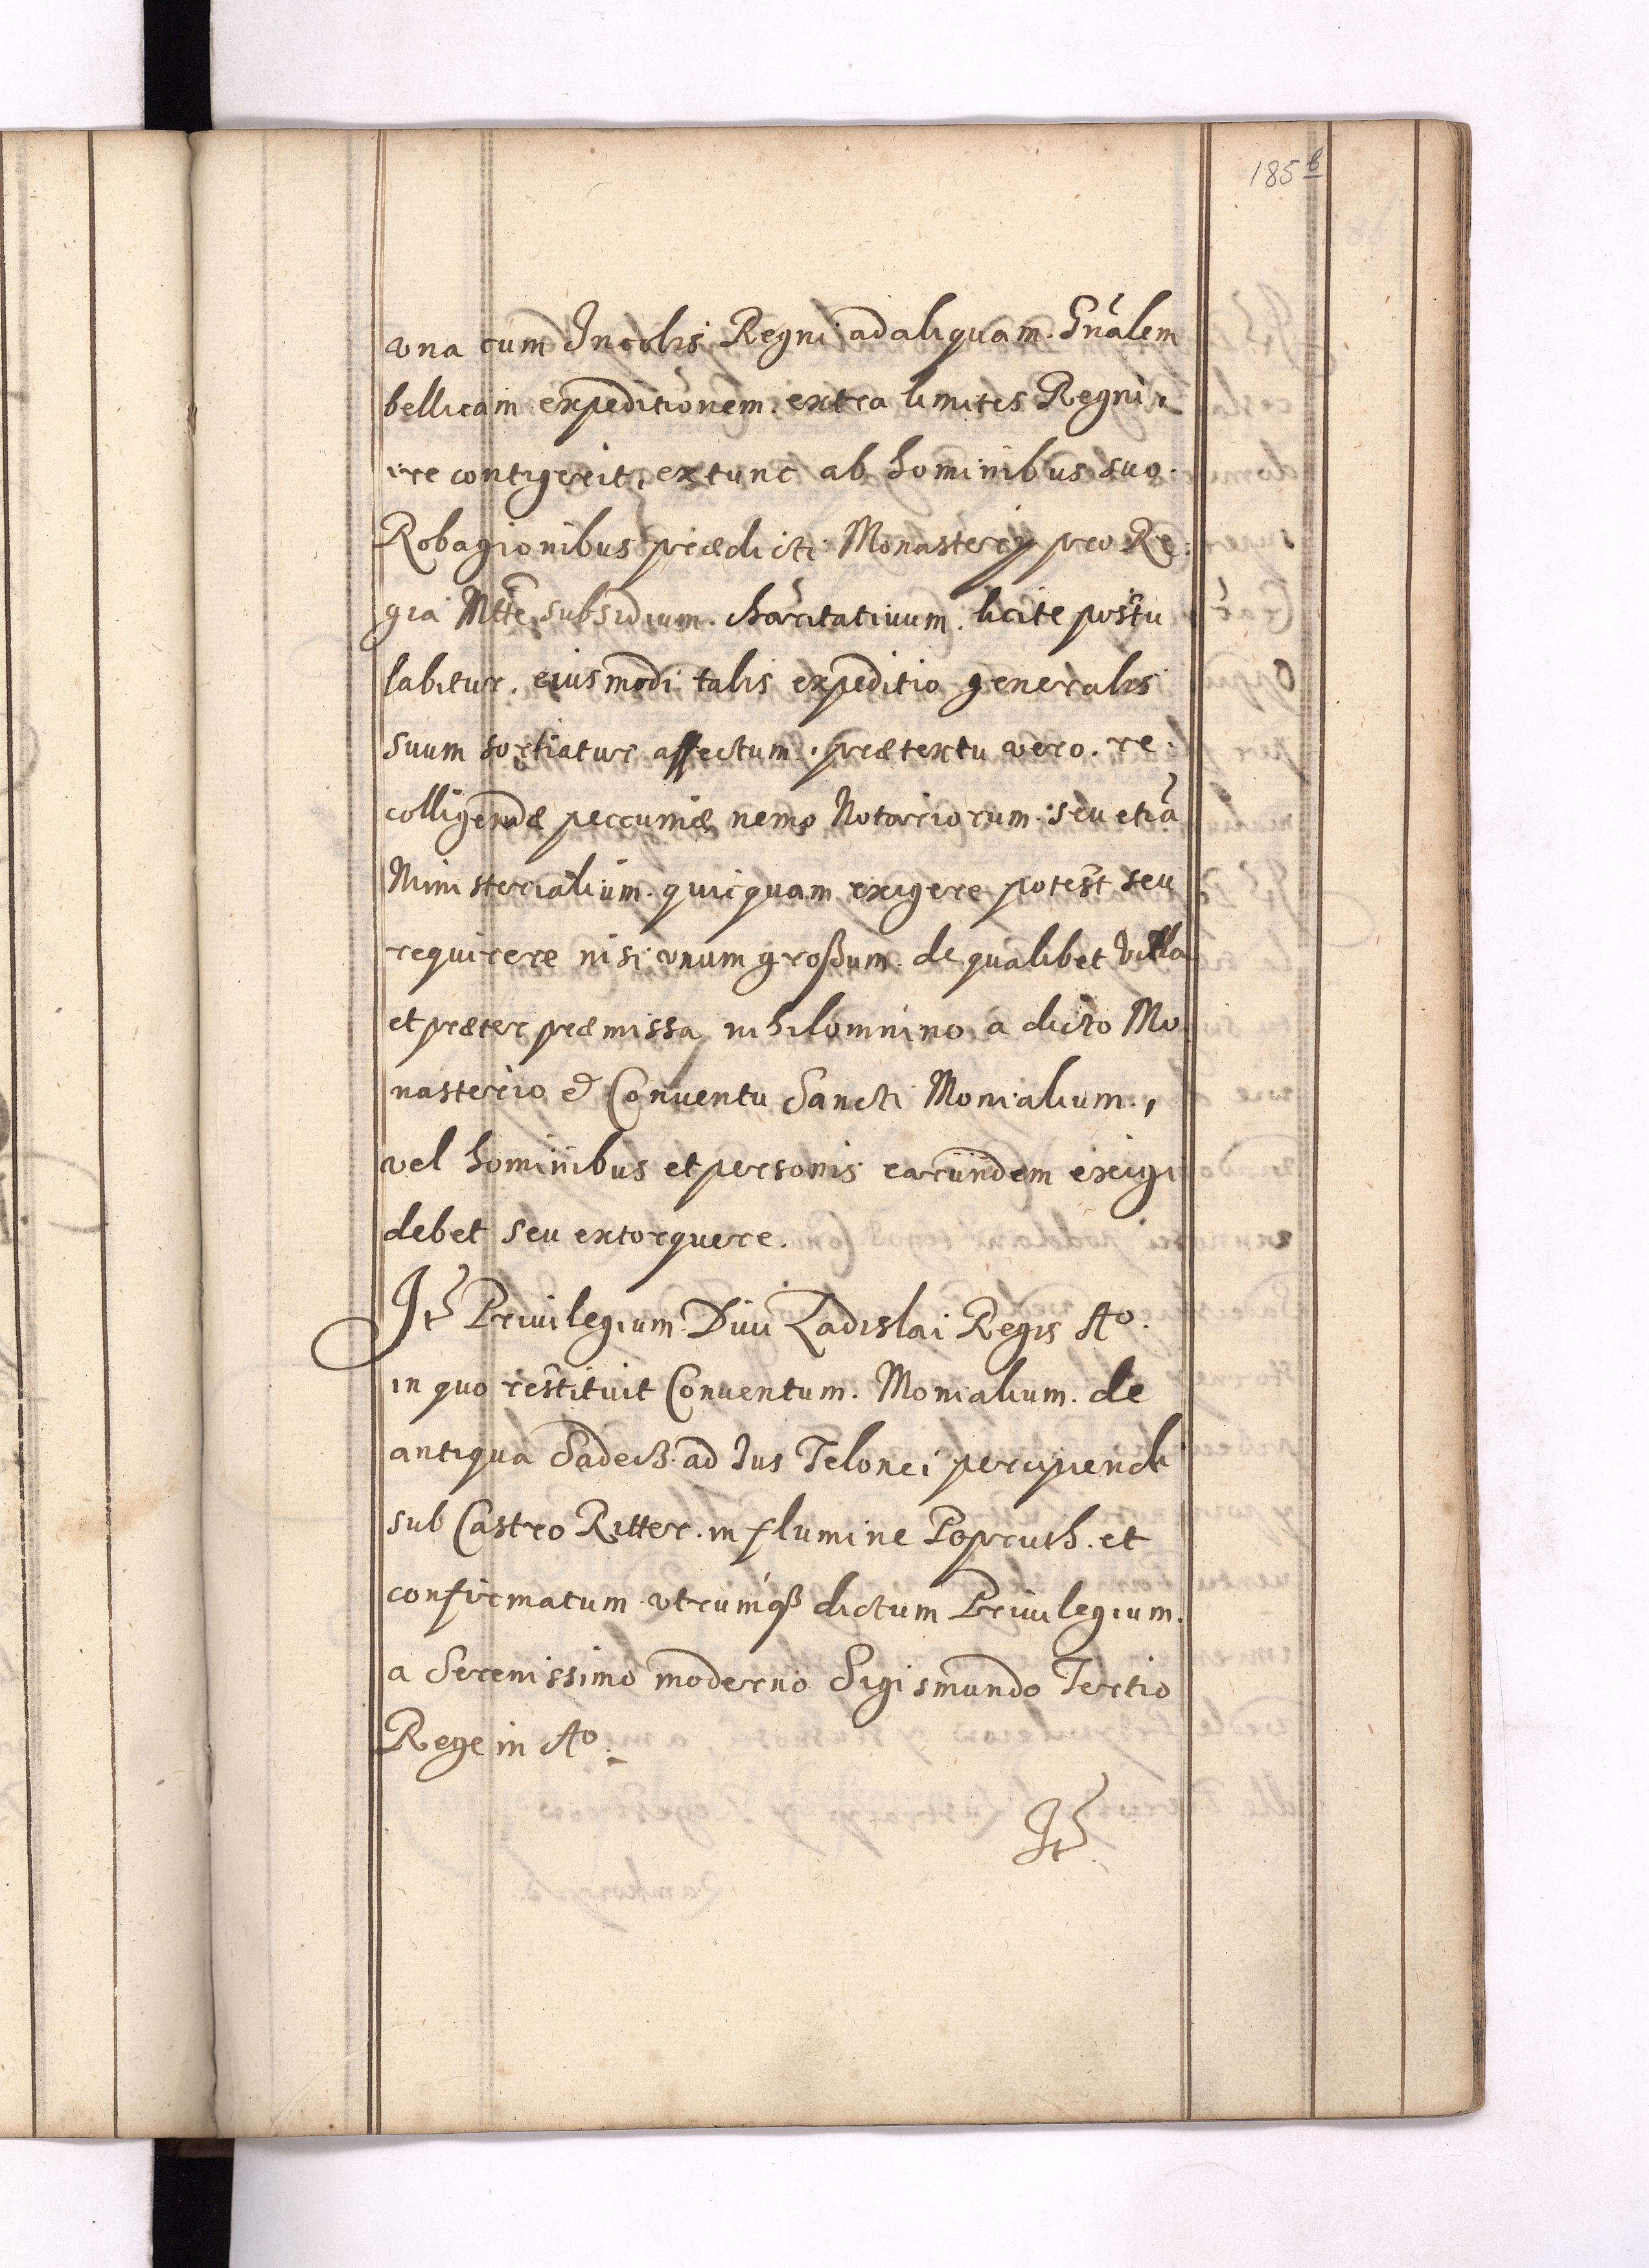 185 b
vna cum Incolis Regni ad aliquam. Gńalem
bellicam expeditionem. extra limites Regni
ire contigerit, extunc ab hominibus suo.
Robagionibus prædicti Monasterij pro Re.
gia Mtte subsidium. charitatiuum. licite postu
labitur. eiusmodi talis expeditio generalis
suum sortiatur affectum. prætextu vero. re.
colligendæ peccuniæ nemo Notariorum. seu etiã
Ministerialium. quicquam exigere potest seu
requirere nisi vnum großum. de qualibet Villa
et præter præmissa, nihilomnino a dicto Mo.
nasterio & Conuentu Sancti Monialium.,
vel hominibus et personis earundem exigi
debet seu extorquere.
It Priuilegium Diui Ladislai Regis Ao.
in quo restituit Conuentum. Monialium. de
antiqua Sadecz. ad Ius Telonei percipiendi
sub Castro Ritter. in flumine Popruth. et
confirmatum vtrumqß dictum Priuilegium.
a Serenissimo moderno Sigismundo Tertio
Rege in Ao.
It